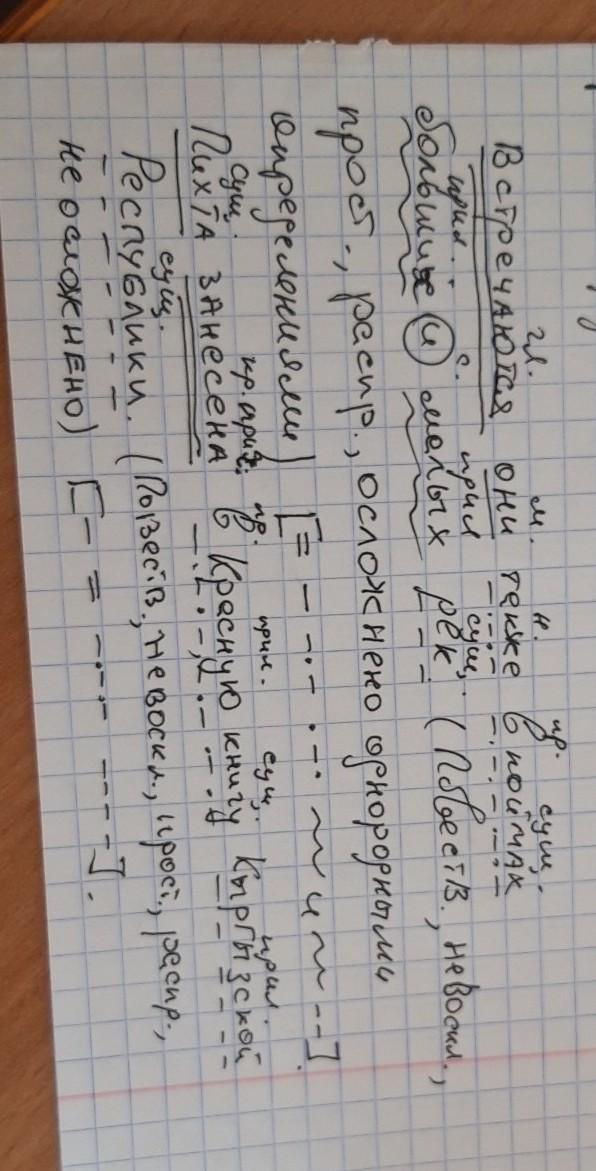 гл. м. н. пр. сущ.
Встречаются они также в поймах
прил. с. прил сущ.
больших и малых рек (Повеств., невоскл.,
прост., распр., осложнено однородными
определениями) [= – -.- .-.. ~ и ~ --].
сущ. кр. прич. пр. прил. сущ. прил.
Пихта занесена в Красную книгу Кыргызской
сущ.
Республики. (Повеств, невоскл., прост, распр.,
неосложнено) [– = -.-.- ----].